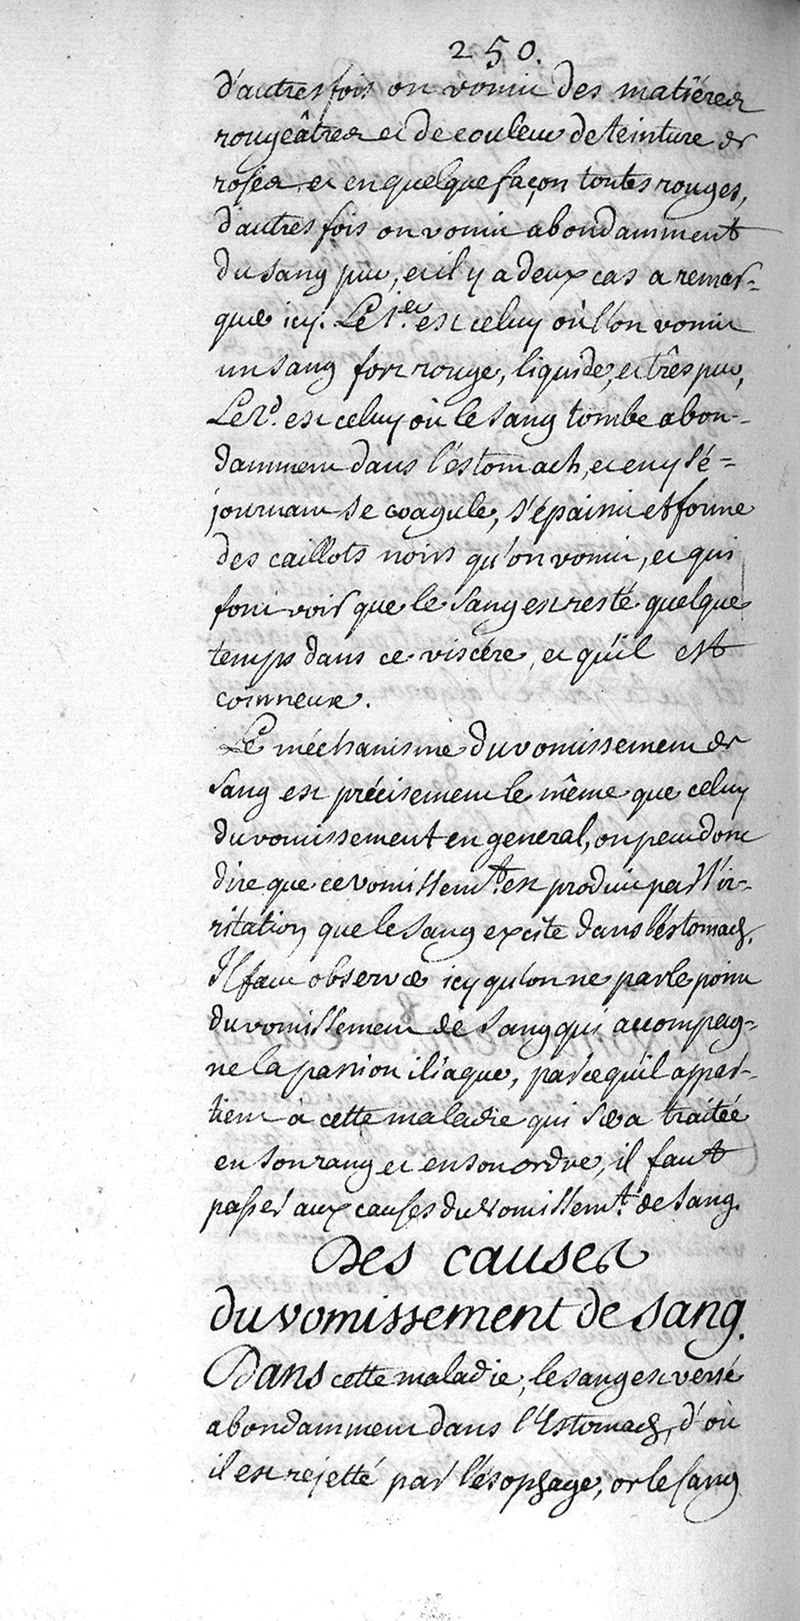 250.
d'autres fois on vomit des matiéres
rougeâtres et de couleur de teinture de
roses et en quelque façon toutes rouges,
d'autres fois on vomit abondamment
du sang pur, et il y a deux cas a remar=
quer icy. Le 1.er est celuy où l'on vomit
un sang fort rouge, liquide, et très pur,
Le 2.d est celuy où le sang tombe abon-
damment dans l'éstomach, et en y sé=
journant se coagule, s'épaissit et forme
des caillots noirs qu'on vomit, et qui
font voir que le sang est resté quelque
temps dans ce viscére, et qu'il est
Le méchanisme du vomissement de
sang est précisement le même que celuy
du vomissement en general, on peut donc
dire que ce vomissem.t est produit par l'ir=
ritation que le sang excite dans l'éstomach.
Il faut observer icy qu'on ne parle point
du vomissement de sang qui accompag=
ne la passion iliaque, parce qu'il appar-
tient à cette maladie qui sera traitée
en son rang et en son ordre, il faut
passer aux causes du vomissem.t de sang.
Des causes
du vomissement de sang.
Dans cette maladie, le sang est versé
abondamment dans l'Estomach, d'où
il est rejetté par l'ésophage, or le sang